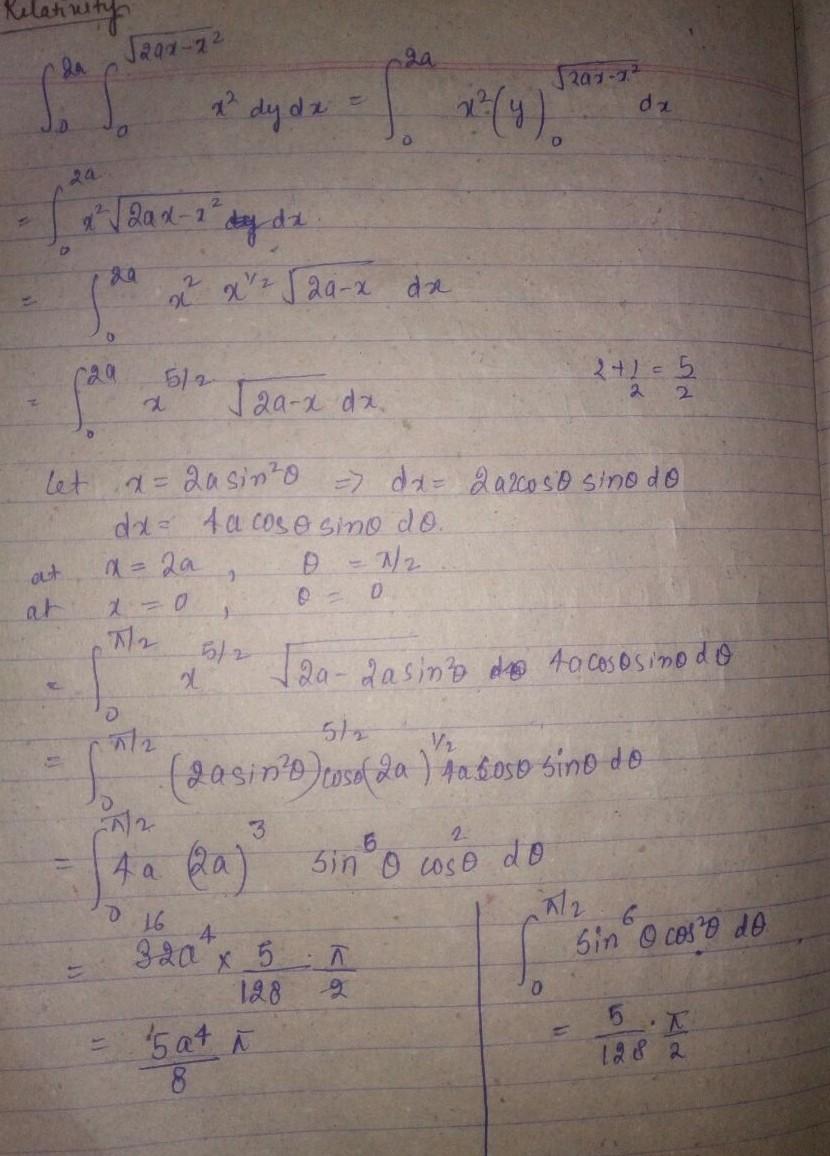 Relativity
∫₀^{2a} ∫₀^{√(2ax-x²)} x² dy dx = ∫₀^{2a} x² (y)₀^{√(2ax-x²)} dx
= ∫₀^{2a} x² √(2ax-x²) dx
= ∫₀^{2a} x² x^{1/2} √(2a-x) dx
= ∫₀^{2a} x^{5/2} √(2a-x) dx. 2+1/2 = 5/2
Let x = 2a sin²θ ⇒ dx = 2a2cosθ sinθ dθ
dx = 4a cosθ sinθ dθ.
at x = 2a, θ = π/2
at x = 0, θ = 0
= ∫₀^{π/2} x^{5/2} √(2a - 2a sin²θ) 4a cosθ sinθ dθ
= ∫₀^{π/2} (2a sin²θ)^{5/2} cosθ (2a)^{1/2} 4a cosθ sinθ dθ
= ∫₀^{π/2} 4a (2a)³ sin⁶θ cos²θ dθ
= 32a⁴ 16 × 5/128 · π/2
= 5a⁴/8 π
∫₀^{π/2} sin⁶θ cos²θ dθ
= 5/128 · π/2